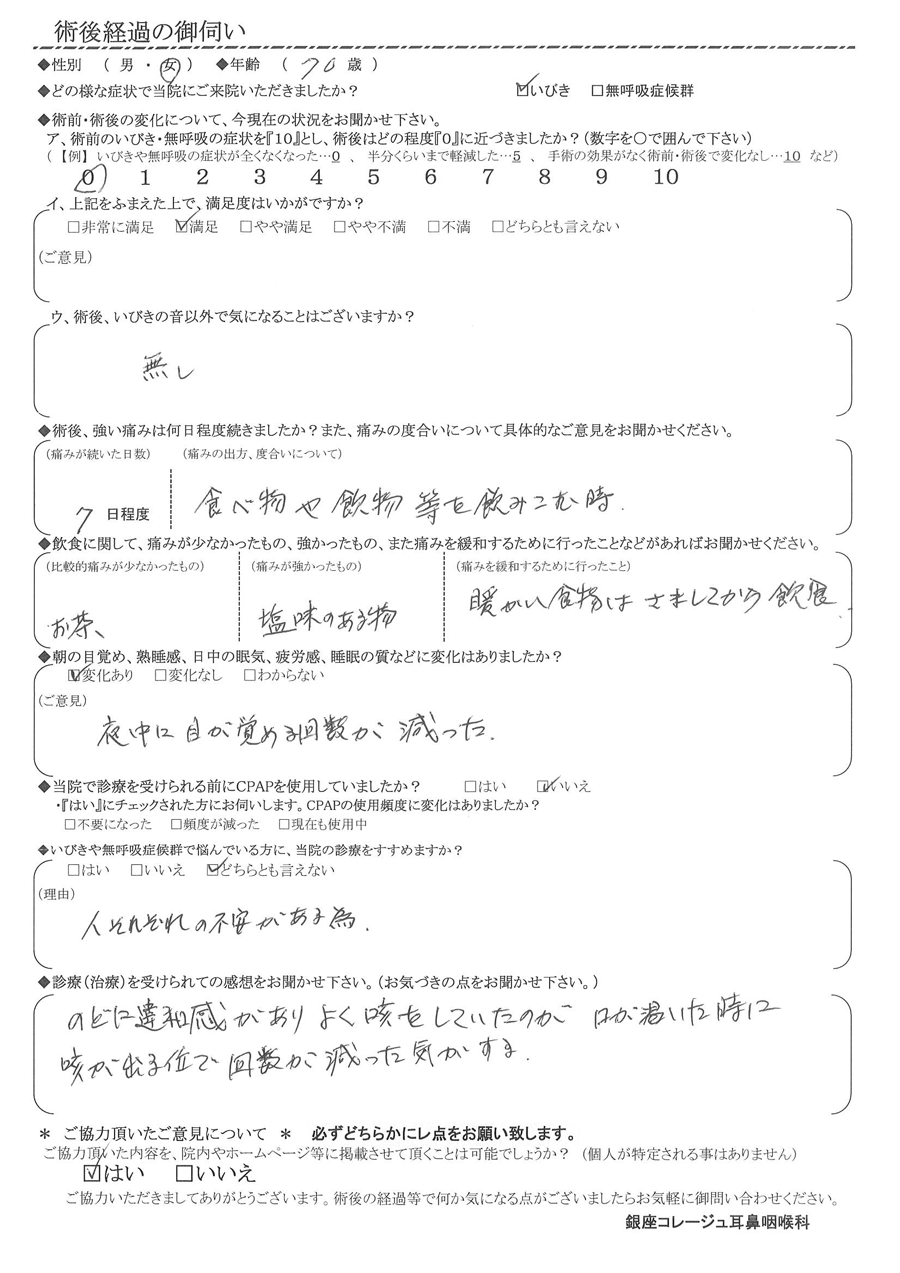 術後経過の御伺い
◆性別 （ 男 ・ 女 ） ◆年齢 （ 70 歳 ）
◆どの様な症状で当院にご来院いただきましたか？ ☑いびき □無呼吸症候群
◆術前・術後の変化について、今現在の状況をお聞かせ下さい。
ア、術前のいびき・無呼吸の症状を『10』とし、術後はどの程度『0』に近づきましたか？（数字を〇で囲んで下さい）
（ 【例】 いびきや無呼吸の症状が全くなくなった…0 、 半分くらいまで軽減した…5 、 手術の効果がなく術前・術後で変化なし…10 など）
0 1 2 3 4 5 6 7 8 9 10
イ、上記をふまえた上で、満足度はいかがですか？
□非常に満足 ☑満足 □やや満足 □やや不満 □不満 □どちらとも言えない
（ご意見）
ウ、術後、いびきの音以外で気になることはございますか？
無し
◆術後、強い痛みは何日程度続きましたか？また、痛みの度合いについて具体的なご意見をお聞かせください。
（痛みが続いた日数） （痛みの出方、度合いについて）
7 日程度 食べ物や飲物等を飲みこむ時.
◆飲食に関して、痛みが少なかったもの、強かったもの、また痛みを緩和するために行ったことなどがあればお聞かせください。
（比較的痛みが少なかったもの） （痛みが強かったもの） （痛みを緩和するために行ったこと）
お茶、 塩味のある物 暖かい食物はさましてから飲食.
◆朝の目覚め、熟睡感、日中の眠気、疲労感、睡眠の質などに変化はありましたか？
☑変化あり □変化なし □わからない
（ご意見）
夜中に目が覚める回数が減った.
◆当院で診療を受けられる前にCPAPを使用していましたか？ □はい ☑いいえ
・『はい』にチェックされた方にお伺いします。CPAPの使用頻度に変化はありましたか？
□不要になった □頻度が減った □現在も使用中
◆いびきや無呼吸症候群で悩んでいる方に、当院の診療をすすめますか？
□はい □いいえ ☑どちらとも言えない
（理由）
人それぞれの不安がある為.
◆診療（治療）を受けられての感想をお聞かせ下さい。（お気づきの点をお聞かせ下さい。）
のどに違和感がありよく咳をしていたのが 口が渇いた時に
咳が出る位で回数が減った気がする.
＊ ご協力頂いたご意見について ＊ 必ずどちらかにレ点をお願い致します。
ご協力頂いた内容を、院内やホームページ等に掲載させて頂くことは可能でしょうか？ （個人が特定される事はありません）
☑はい □いいえ
ご協力いただきましてありがとうございます。術後の経過等で何か気になる点がございましたらお気軽に御問い合わせください。
銀座コレージュ耳鼻咽喉科